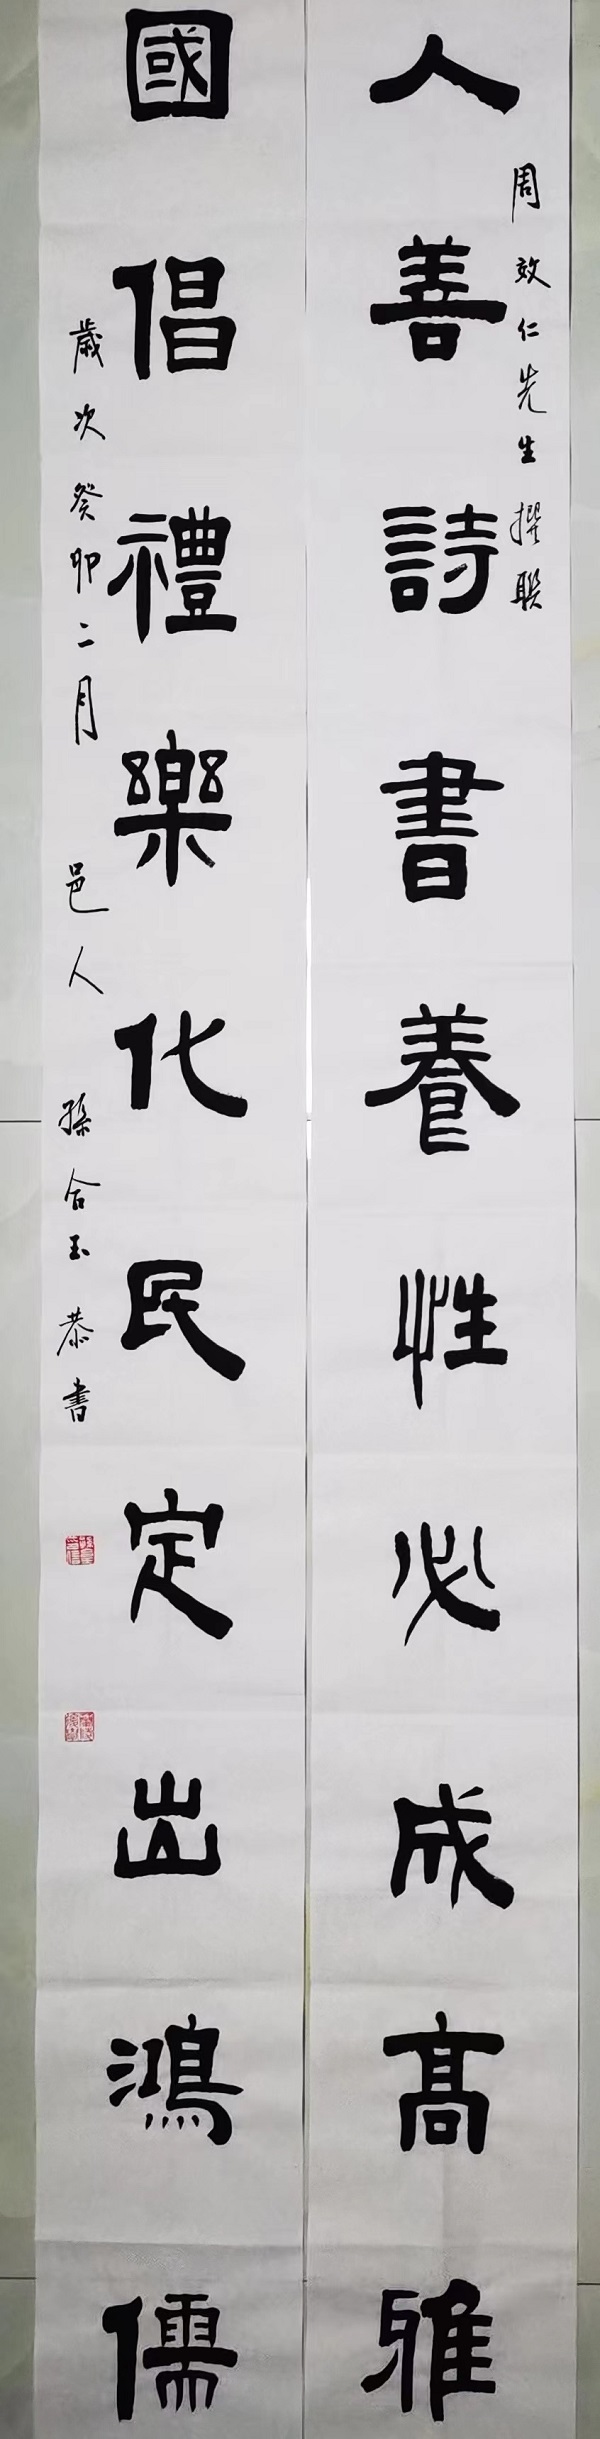 周效仁先生撰聯
人善詩書養性必成高雅
國倡禮樂化民定出鴻儒
歲次癸卯二月 邑人 孫合玉恭書